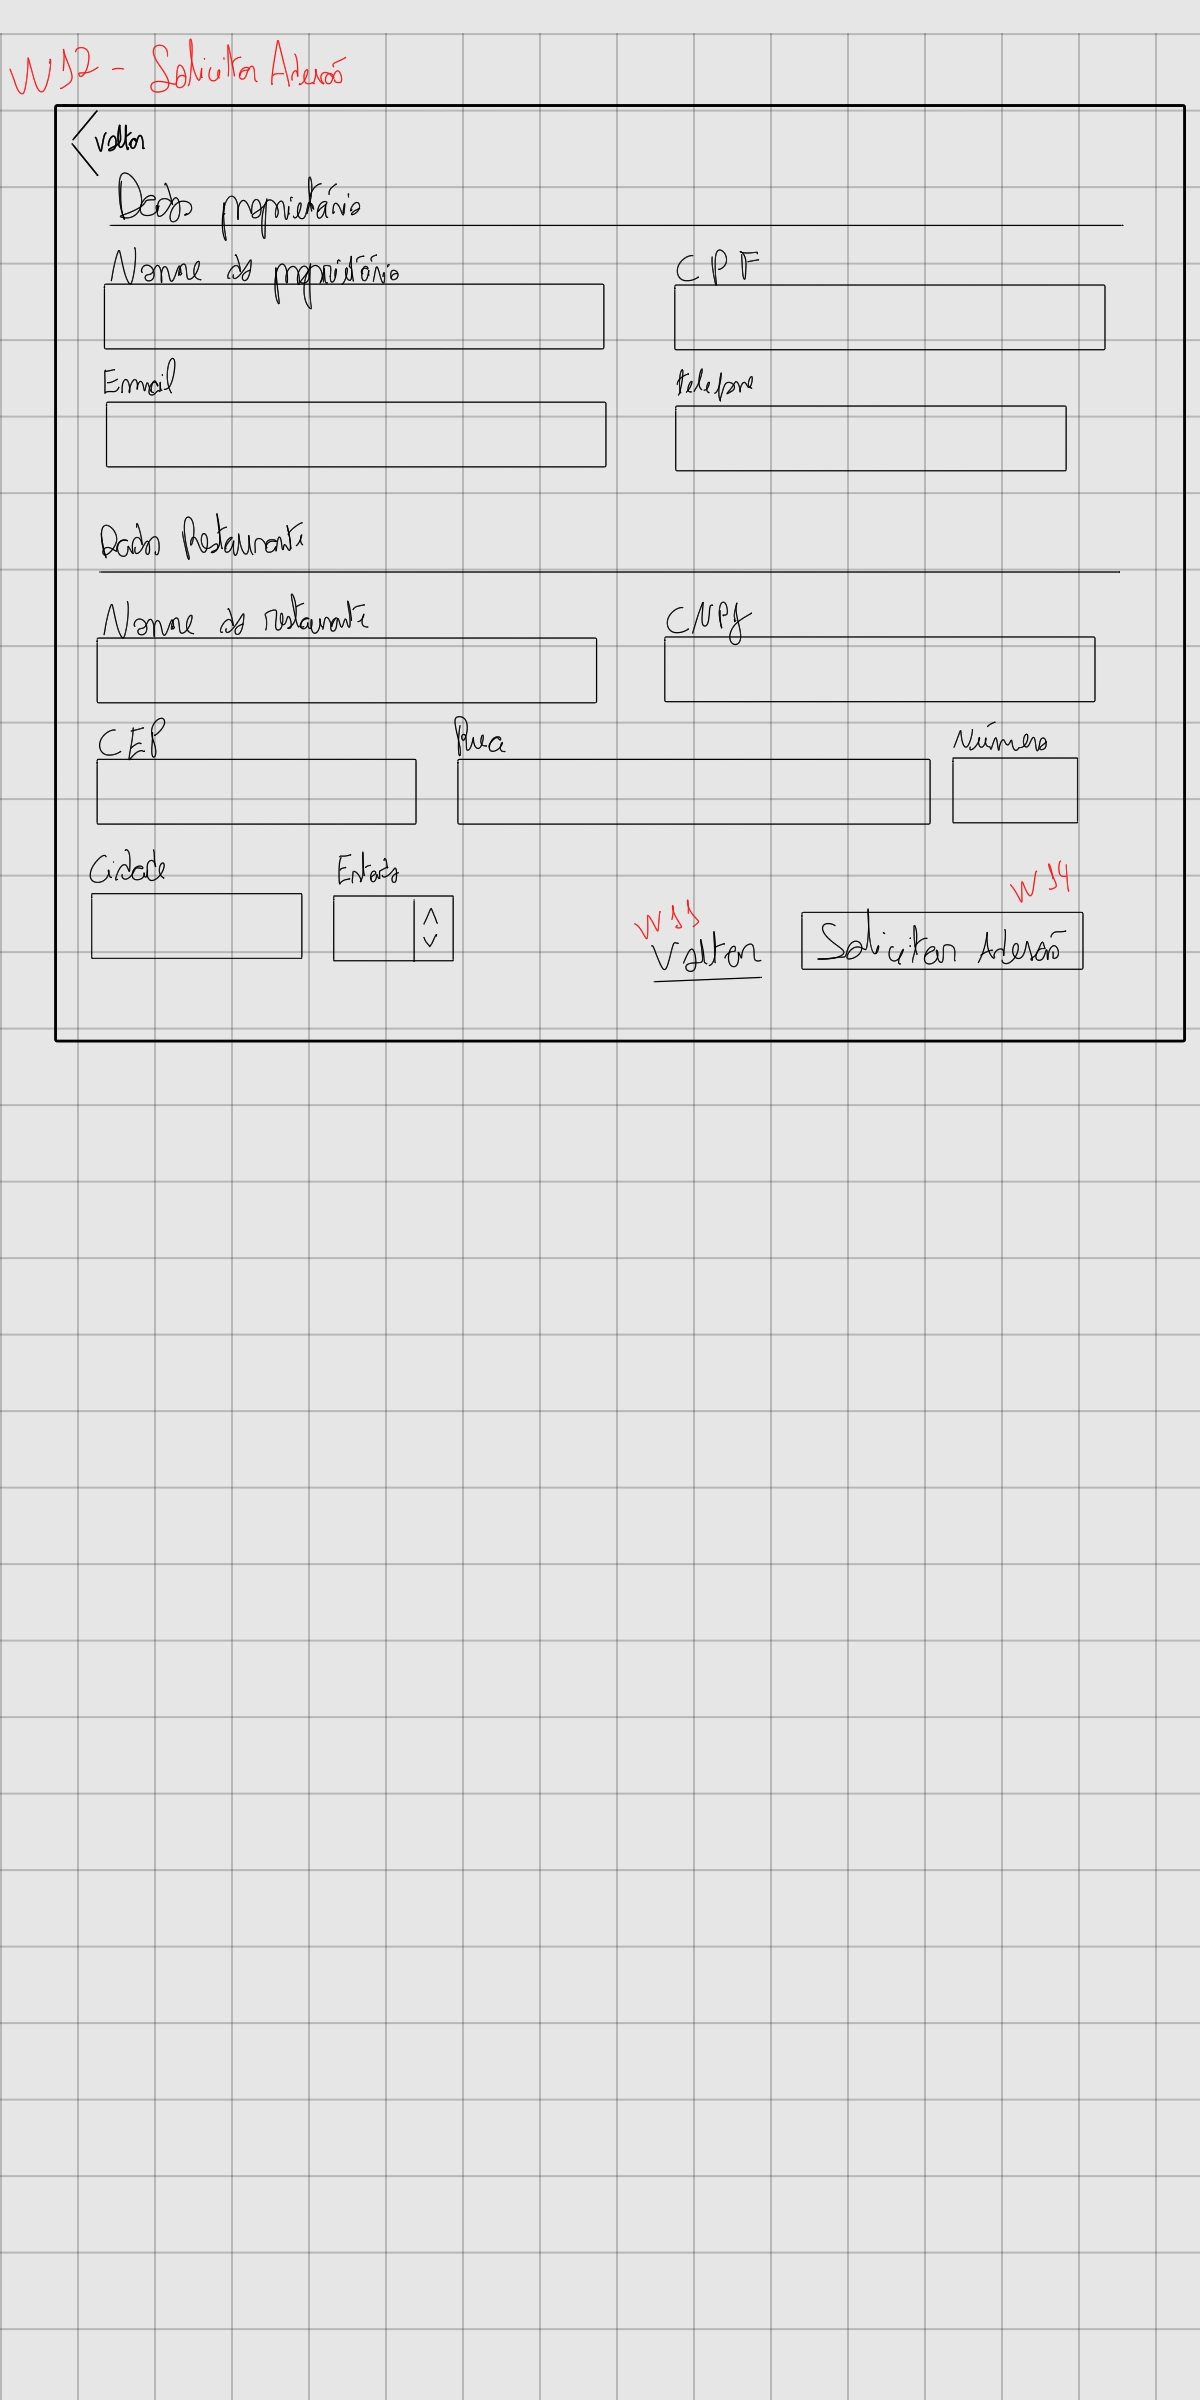 W12 - Solicitar Adesão
Voltar
Dados proprietário
Nome do proprietário CPF
Email telefone
Dados Restaurante
Nome do restaurante CNPJ
CEP Rua Número
Cidade Estado
W14
W11
Voltar Solicitar Adesão